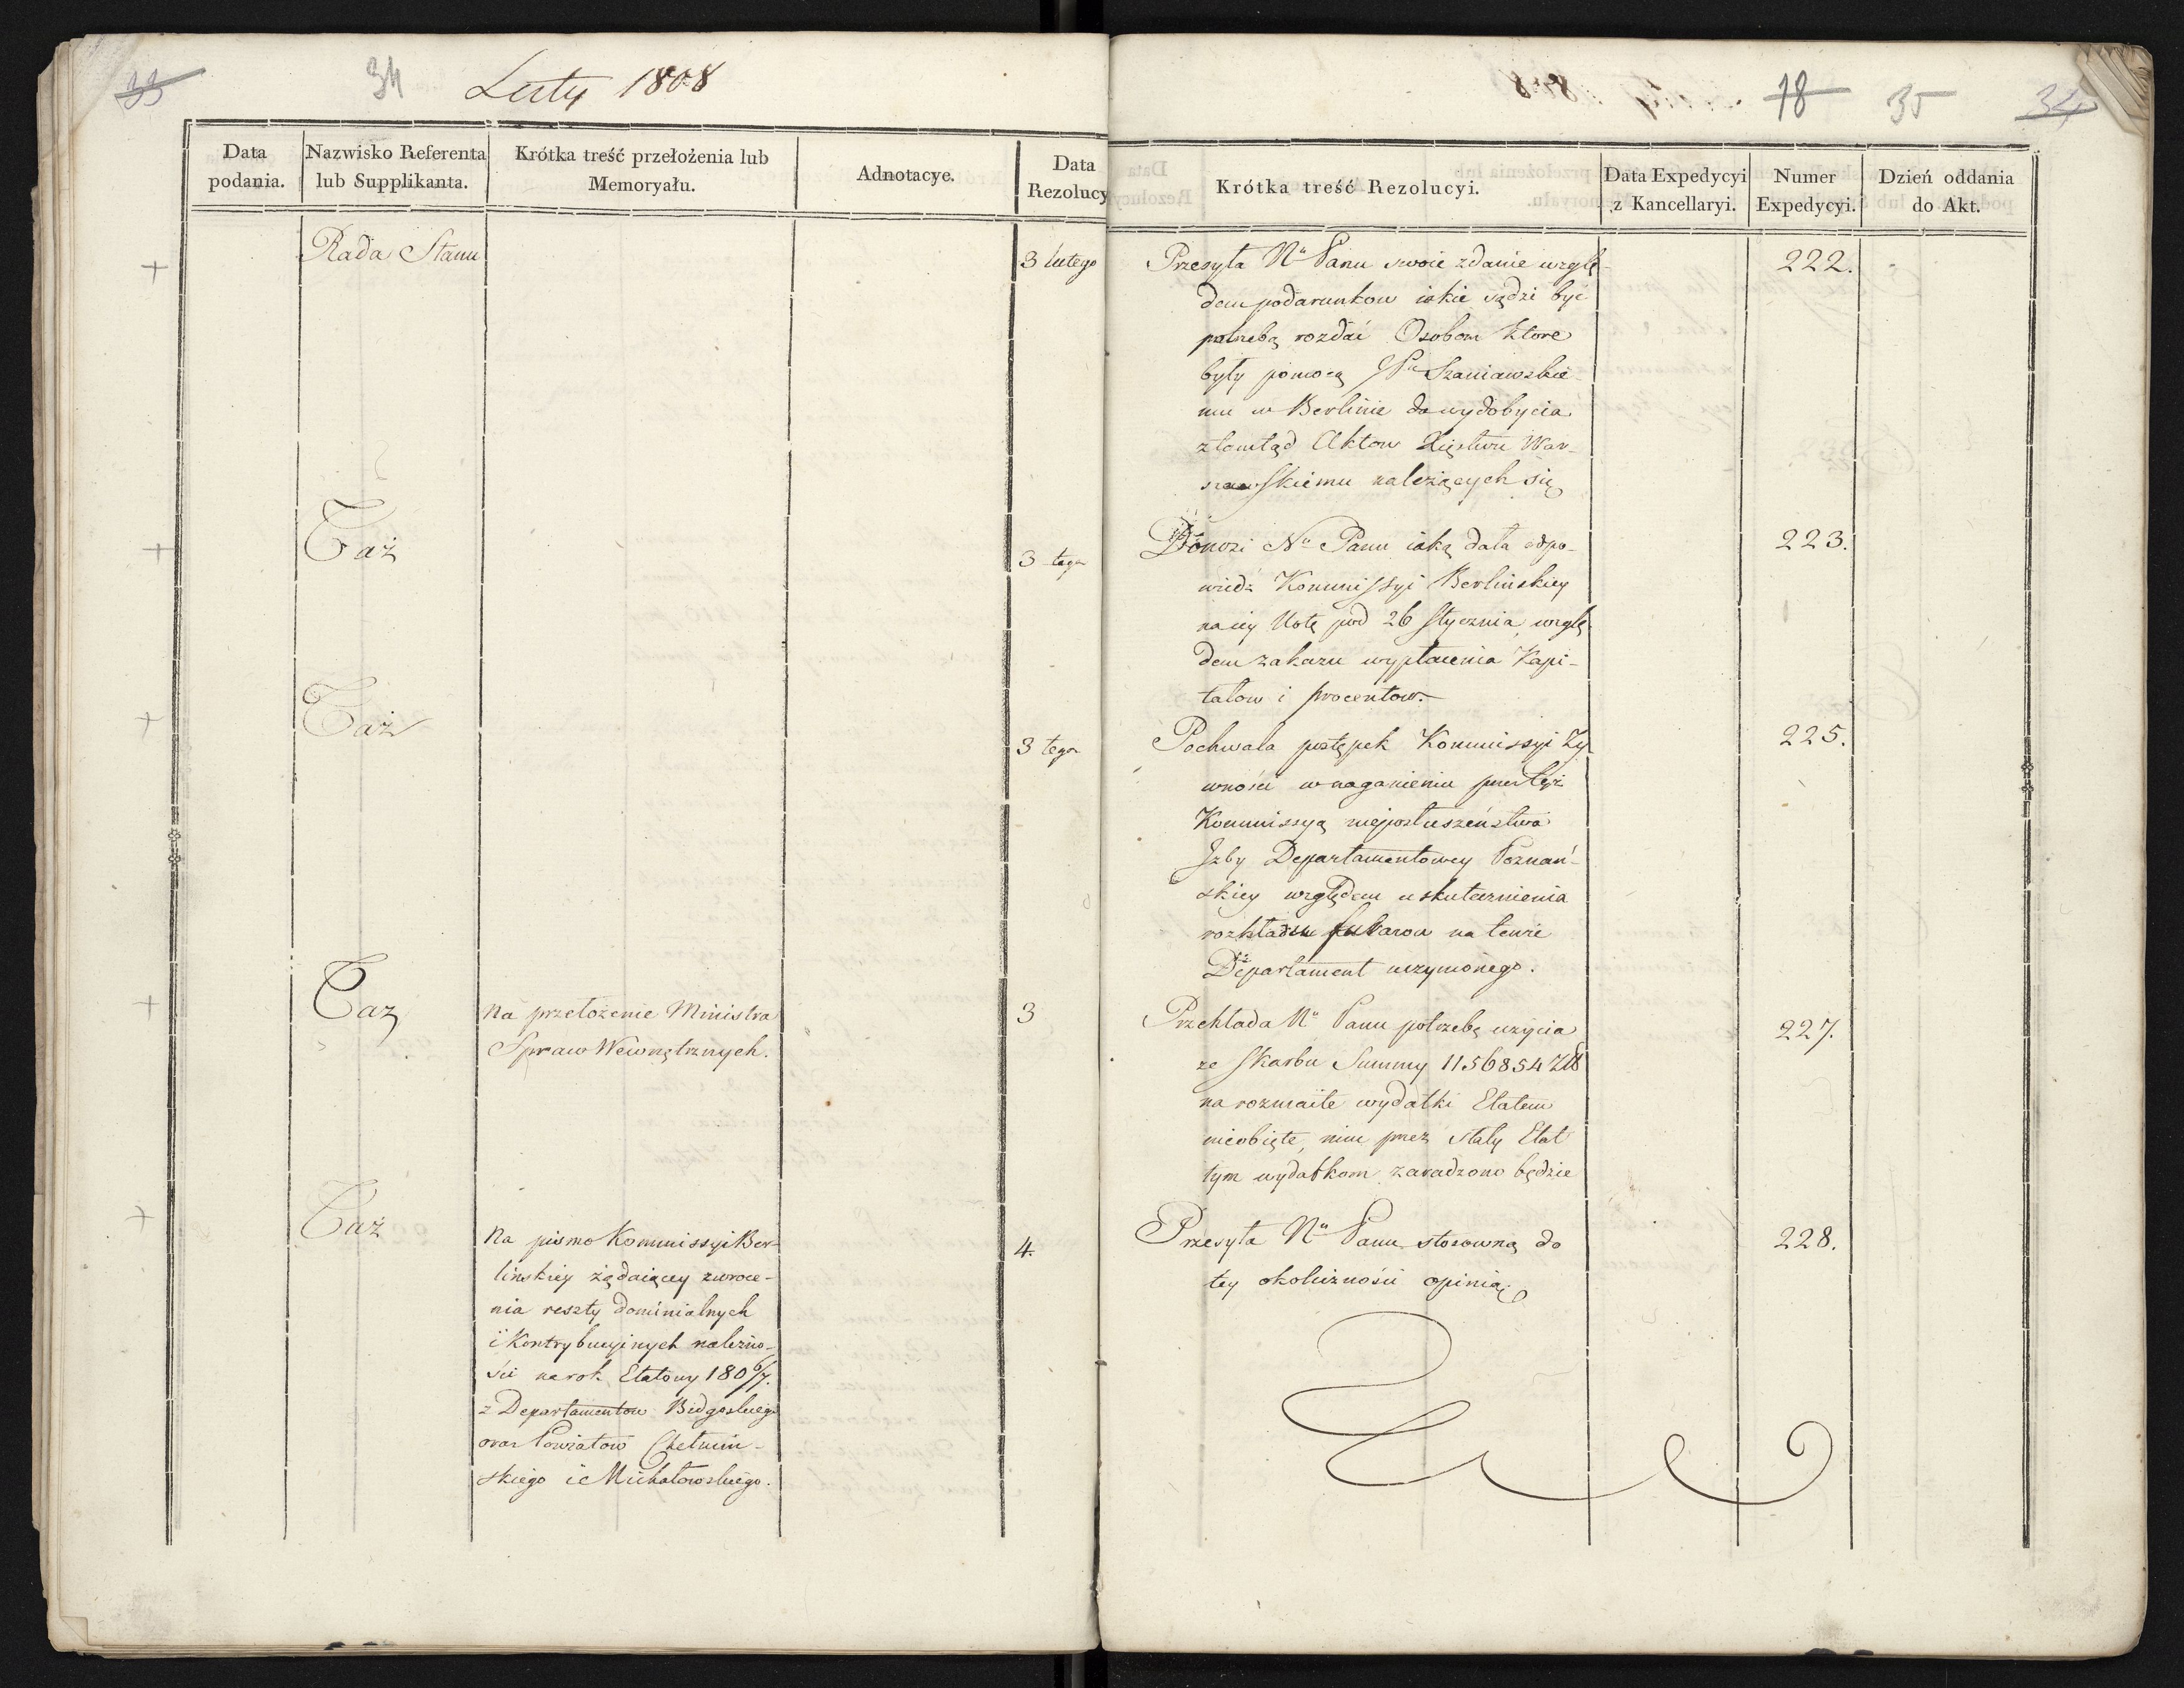 33 34 Luty 1808
Data podania. Nazwisko Referenta lub Supplikanta. Krótka treść przełożenia lub Memoryału. Adnotacye. Data Rezolucy
Rada Stanu 3 lutego
Taż 3 tego
Taż 3 tego
Taż Na przełożenie Ministra 3
Spraw Wewnętrznych.
Taż
Na pismo Kommissyi Ber- 4.
linskiey żądaiącey zwroce-
nia reszty dominialnych
i Kontrybucyinych należno-
ści na rok Etatowy 1806/7.
z Departamentow Bidgoskiego
oraz Powiatow Chełmin-
skiego i Michałowskiego.
18 35 34
Krótka treść Rezolucyi. Data Expedycyi z Kancellaryi. Numer Expedycyi. Dzień oddania do Akt.
Przesyła Nu Panu swoie zdanie wzglę- 222.
dem podarunkow iakie sądzi być
potrzebą rozdać Osobom ktore
były pomocą Pu Szaniawskie-
mu w Berlinie do wydobycia
ztamtąd Aktow Xięstwu War-
szawskiemu należących się
Donosi Nu Panu iaką dała odpo- 223.
wiedź Kommissyi Berlinskiey
na iey Notę pod 26 Stycznia wzglę-
dem zakazu wypłacenia Kapi-
tałow i procentow.
Pochwala postępek Kommissyi Ży 225.
wności w naganieniu przez tęż
Kommissyą nieposłuszeństwa
Izby Departamentowey Poznań-
skiey względem uskutecznienia
rozkładu na tenże
Departament uczynionego.
Przekłada Nu Panu potrzebę użycia 227.
ze Skarbu Summy 1156854 Zł
na rozmaite wydatki Etatem
nieobięte, nim przez stały Etat
tym wydatkom zaradzono będzie
Przesyła Nu Panu stosowną do 228.
tey okoliczności opinią.